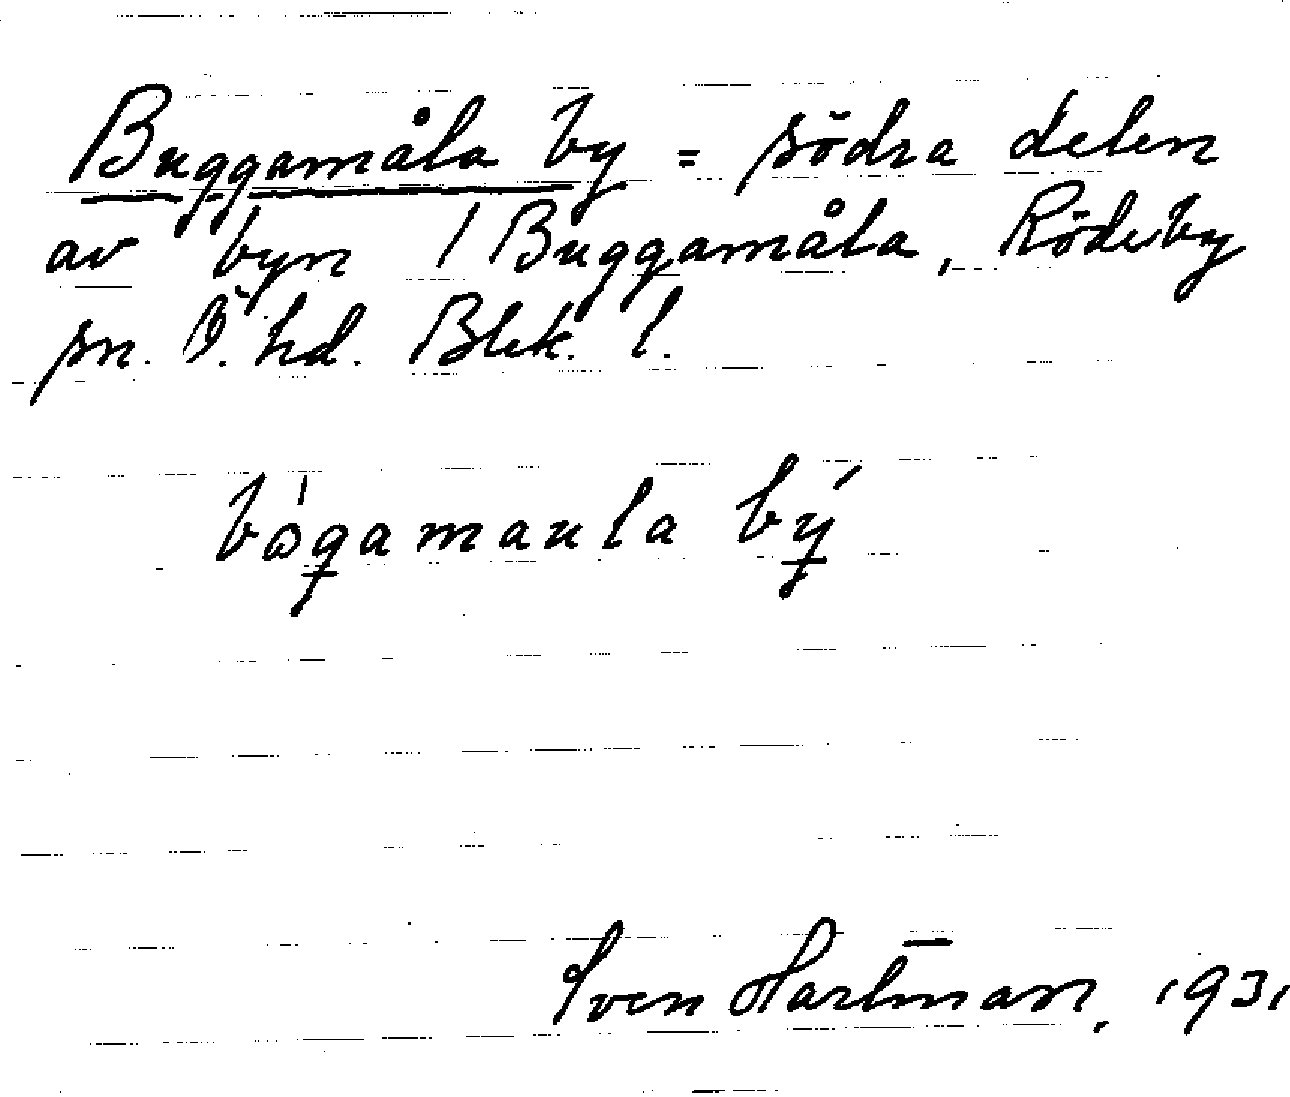 Buggamåla by = södra delen
av byn / Buggamåla, Rödeby
sn. Ö. hd. Blek. l.
bògamaula bý
Sven Hartman, 1931